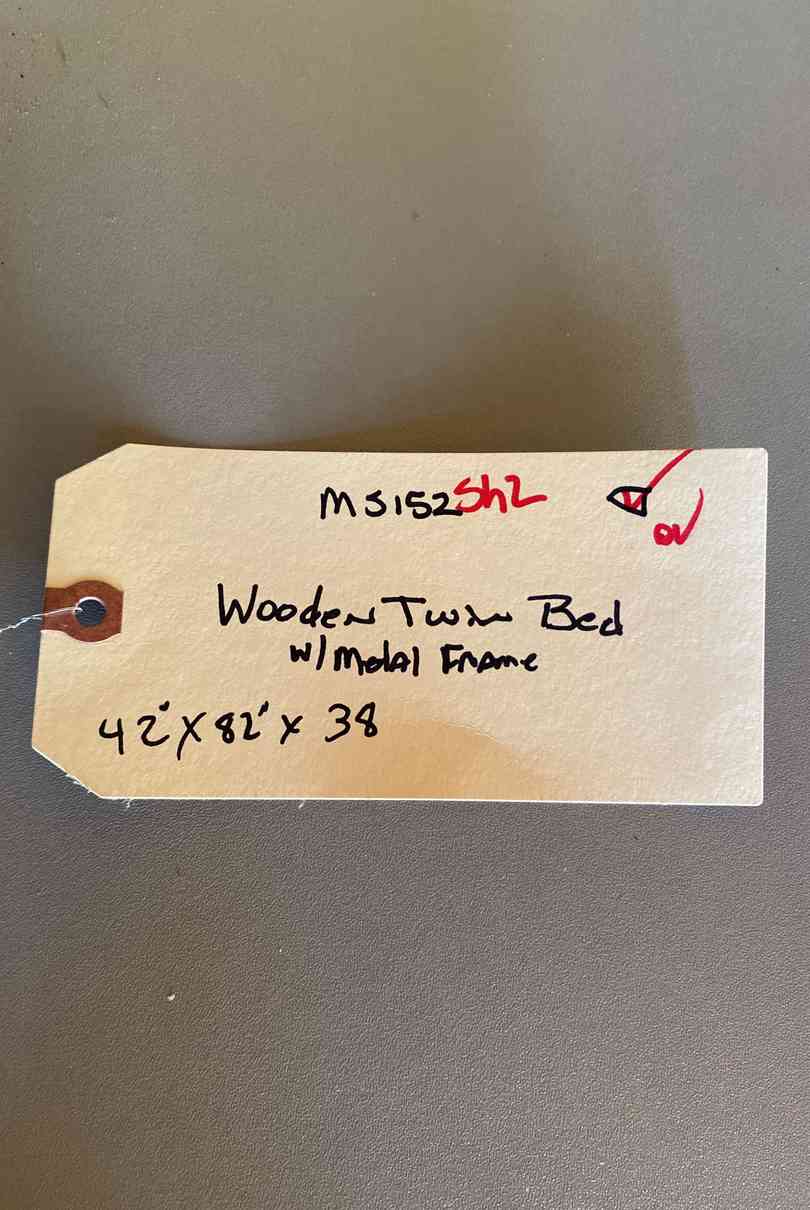 MS152Sh2
OV
Wooden Twin Bed
w/ Metal Frame
42" X 82" X 38